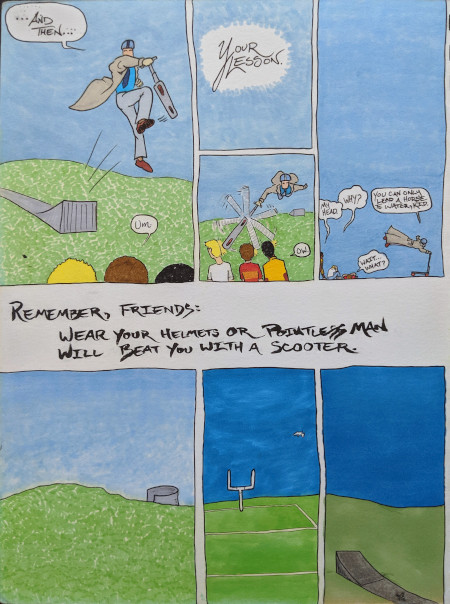 ...AND
THEN...
UM.
YOUR
LESSON.
OW.
MY
HEAD.
WHY?
YOU CAN ONLY
LEAD A HORSE
WAIT...
WHAT?
REMEMBER, FRIENDS:
WEAR YOUR HELMETS OR POINTLESS MAN
WILL BEAT YOU WITH A SCOOTER.